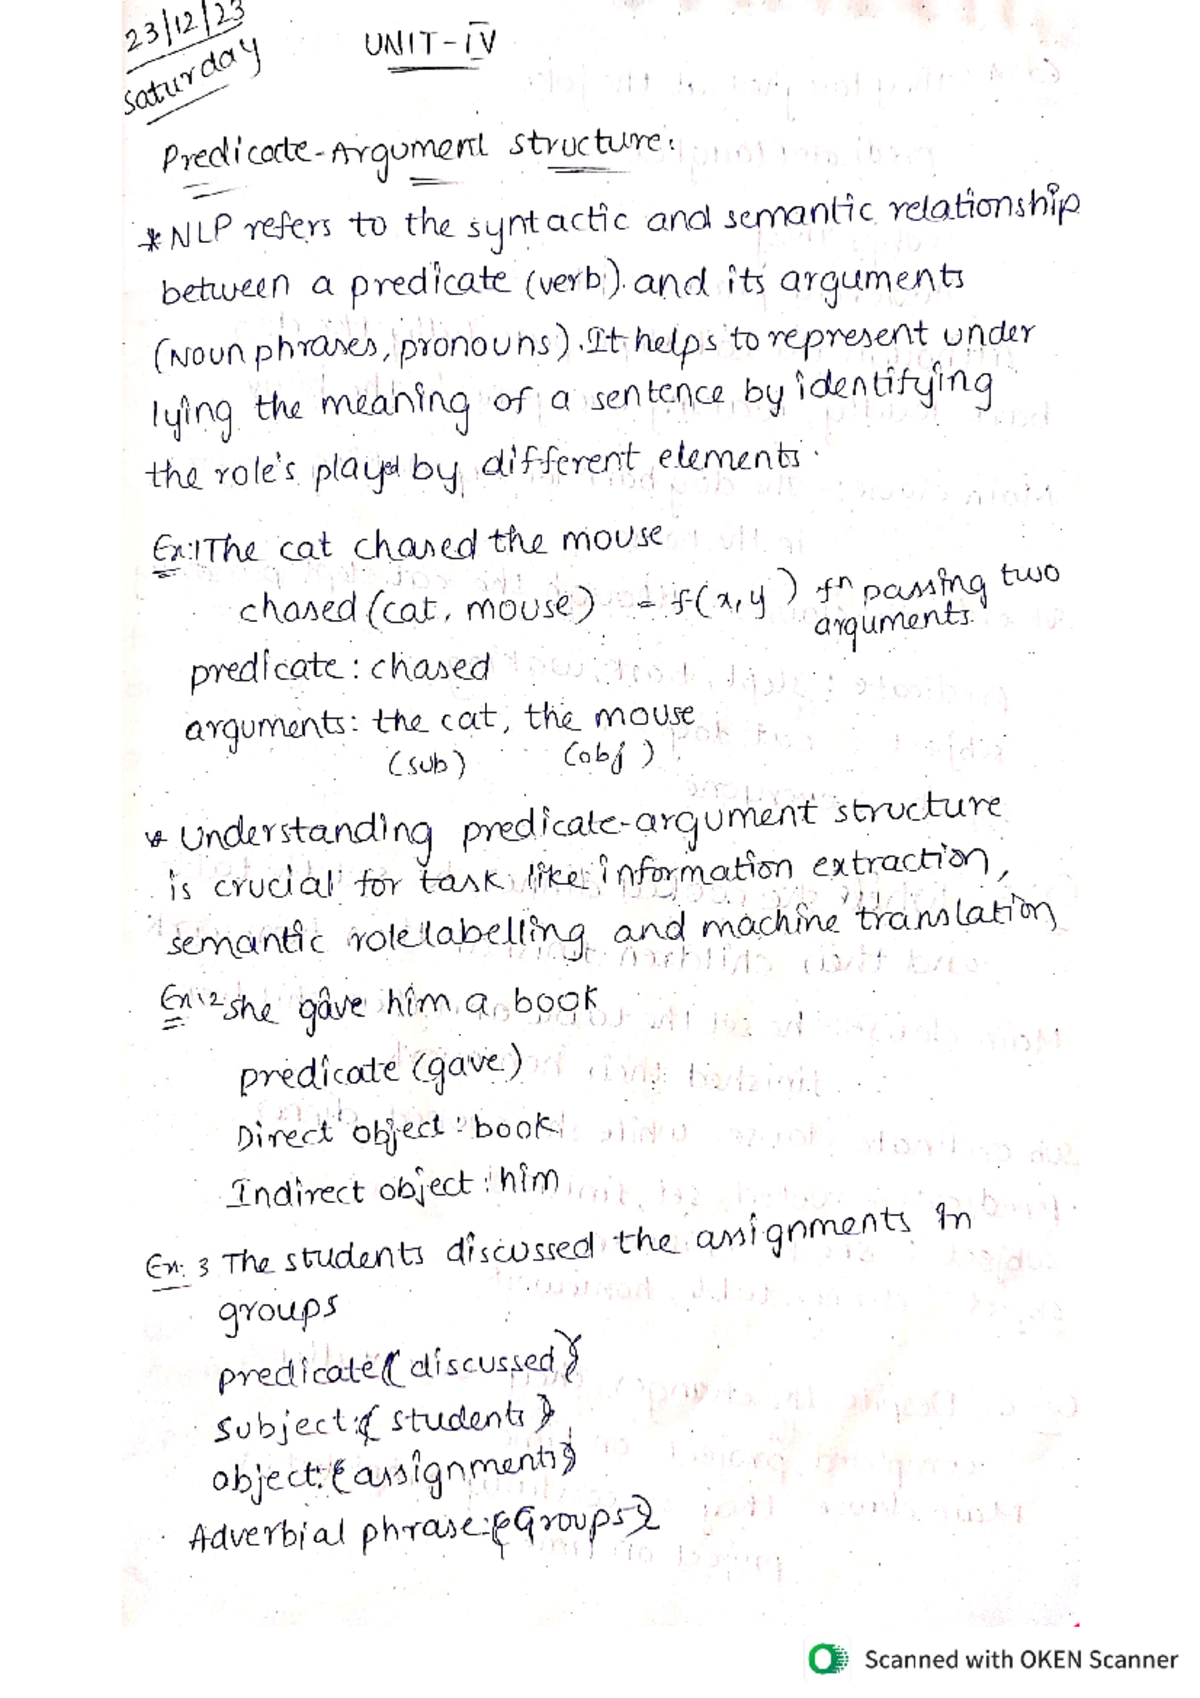 23/12/23
Saturday
UNIT-IV
Predicate-Argument structure:
* NLP refers to the syntactic and semantic relationship
between a predicate (verb). and its arguments
(Noun phrases, pronouns). It helps to represent under
lying the meaning of a sentence by identifying
the role's played by different elements.
Ex:1 The cat chased the mouse
chased (cat, mouse) = f(x,y) fn passing two
arguments.
predicate: chased
arguments: the cat, the mouse
(sub) (obj)
* Understanding predicate-argument structure
is crucial for task like information extraction,
semantic role labelling and machine translation
Ex:2 she gave him a book
predicate (gave)
Direct object: book
Indirect object: him
Ex: 3 The students discussed the assignments in
groups
predicate {discussed}
subject: { students }
object: {assignments}
Adverbial phrase: {Groups}
Scanned with OKEN Scanner